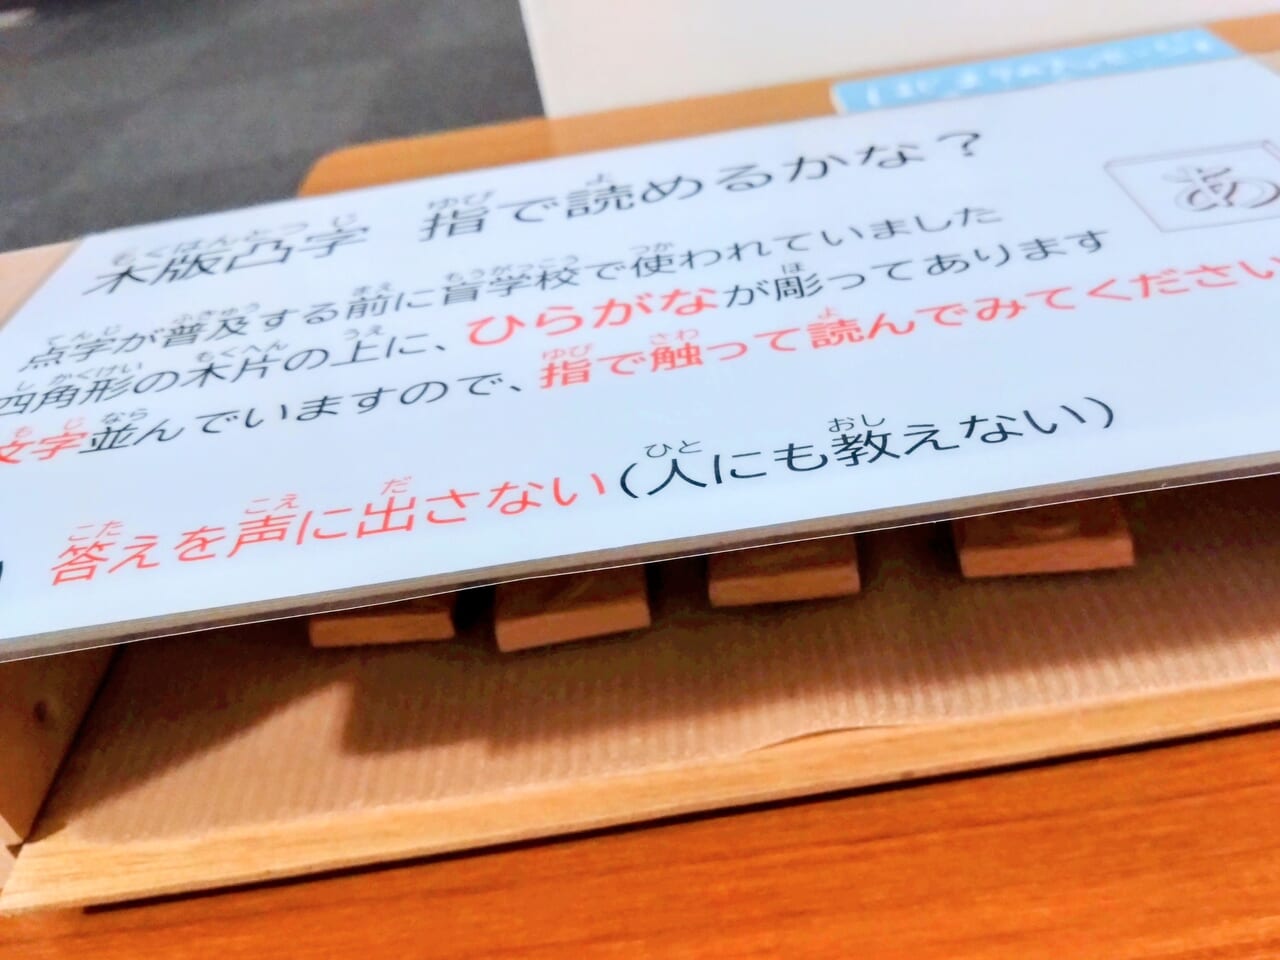 木版凸字　指で読めるかな？
点字が普及する前に盲学校で使われていました
四角形の木片の上に、ひらがなが彫ってあります
文字並んでいますので、指で触って読んでみてください
答えを声に出さない（人にも教えない）
あ